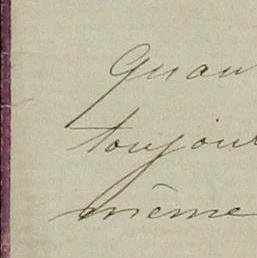 Quan
toujour
même